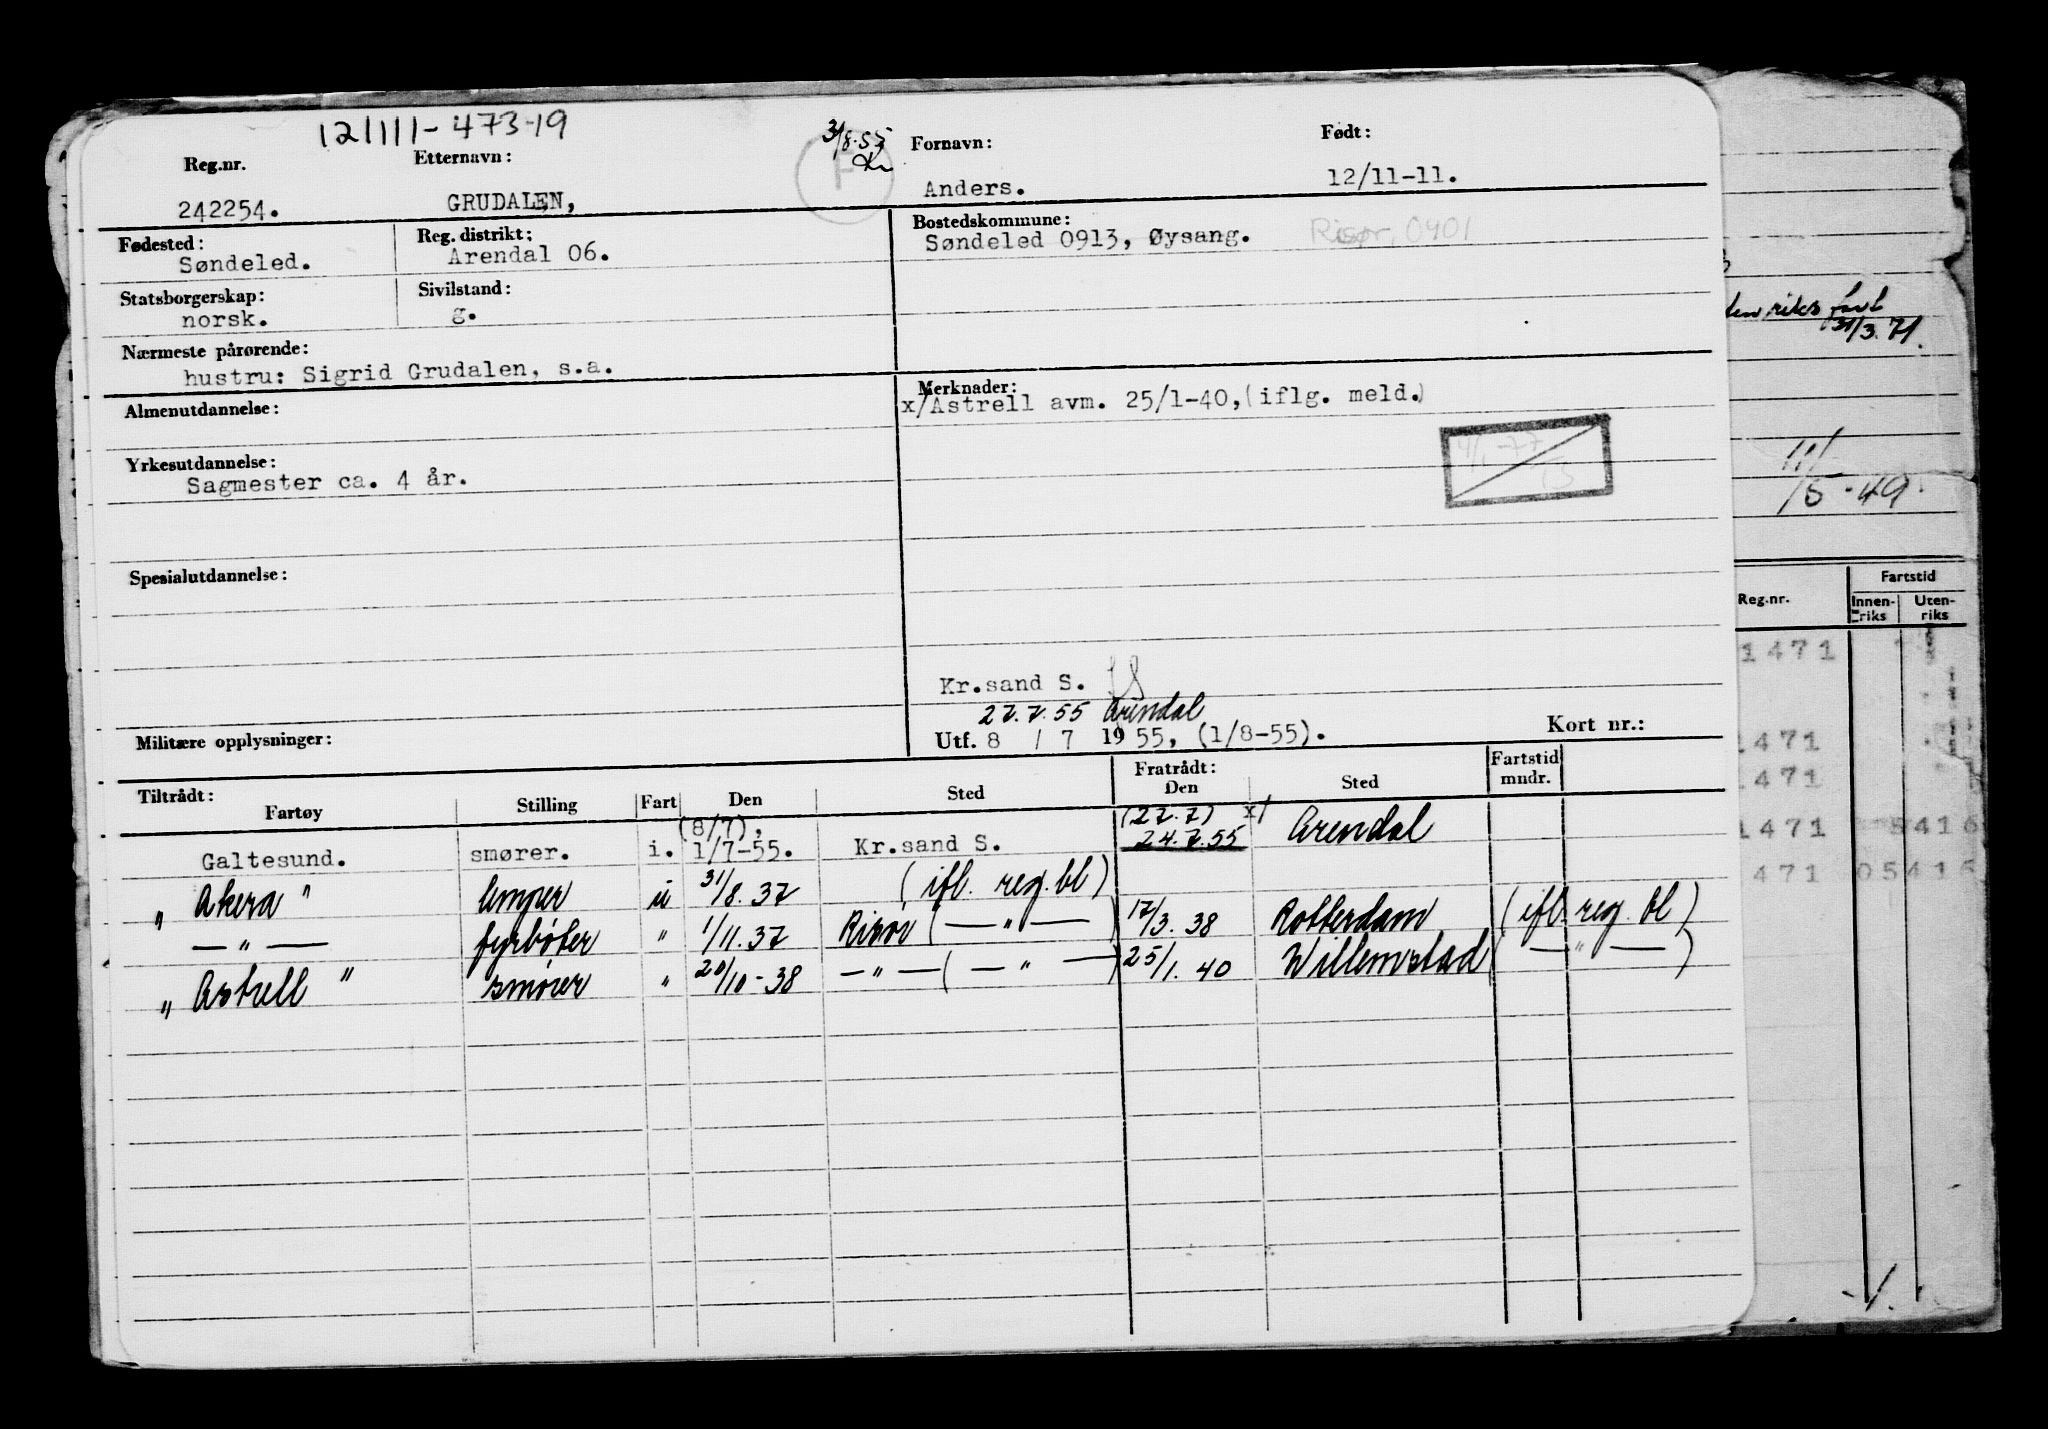 121111-473-19
3/8.55
Reg.nr. Etternavn: Fornavn: Født:
242254. GRUDALEN, Anders. 12/11-11.
Fødested: Reg. distrikt: Bostedskommune:
Søndeled. Arendal 06. Søndeled 0913, Øysang. Risør, 0401
Statsborgerskap: Sivilstand:
norsk. g.
Nærmeste pårørende:
hustru: Sigrid Grudalen, s.a.
Almenutdannelse: Merknader:
x/Astrell avm. 25/1-40, (iflg. meld.)
4/1-77
Yrkesutdannelse:
Sagmester ca. 4 år.
Spesialutdannelse:
Kr.sand S.
27.7.55 Arendal
Militære opplysninger: Utf. 8 / 7 1955, (1/8-55). Kort nr.:
Tiltrådt: Fratrådt: Fartstid
Fartøy Stilling Fart Den Sted Den Sted mndr.
(8/7), (27.7) x/
Galtesund. smører. i. 1/7-55. Kr.sand S. 24.7.55 Arendal
"Akera" lemper u 31/8.37 (ifl. reg. bl)
— " — fyrbøter " 1/11.37 Risør (— " —) 17/3.38 Rotterdam (ifl. reg. bl)
"Astrell" smører " 20/10-38 — " — (— " —) 25/1.40 Willemstad (— " —)
riks fart
31/3.71.
15-49.
Fartstid
Reg.nr. Innenriks Utenriks
1471
1471
1471
1471 5416
471 05416